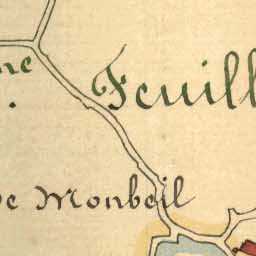 ne
Feuill
De Monbeil